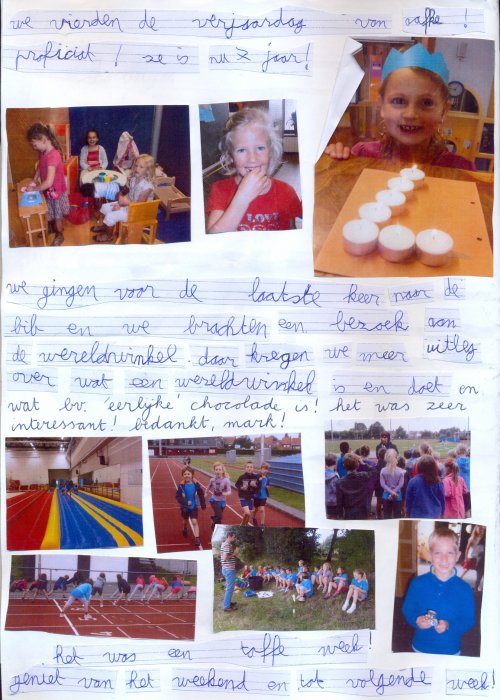 we vierden de verjaardag van saffke!
proficiat! ze is nu 7 jaar!
LOVE
we gingen voor de laatste keer naar de
bib en we brachten een bezoek aan
de wereldwinkel. daar kregen we meer uitleg
over wat een wereldwinkel is en doet en
wat bv. 'eerlijke' chocolade is! het was zeer
interessant! bedankt, mark!
het was een toffe week!
geniet van het weekend en tot volgende week!